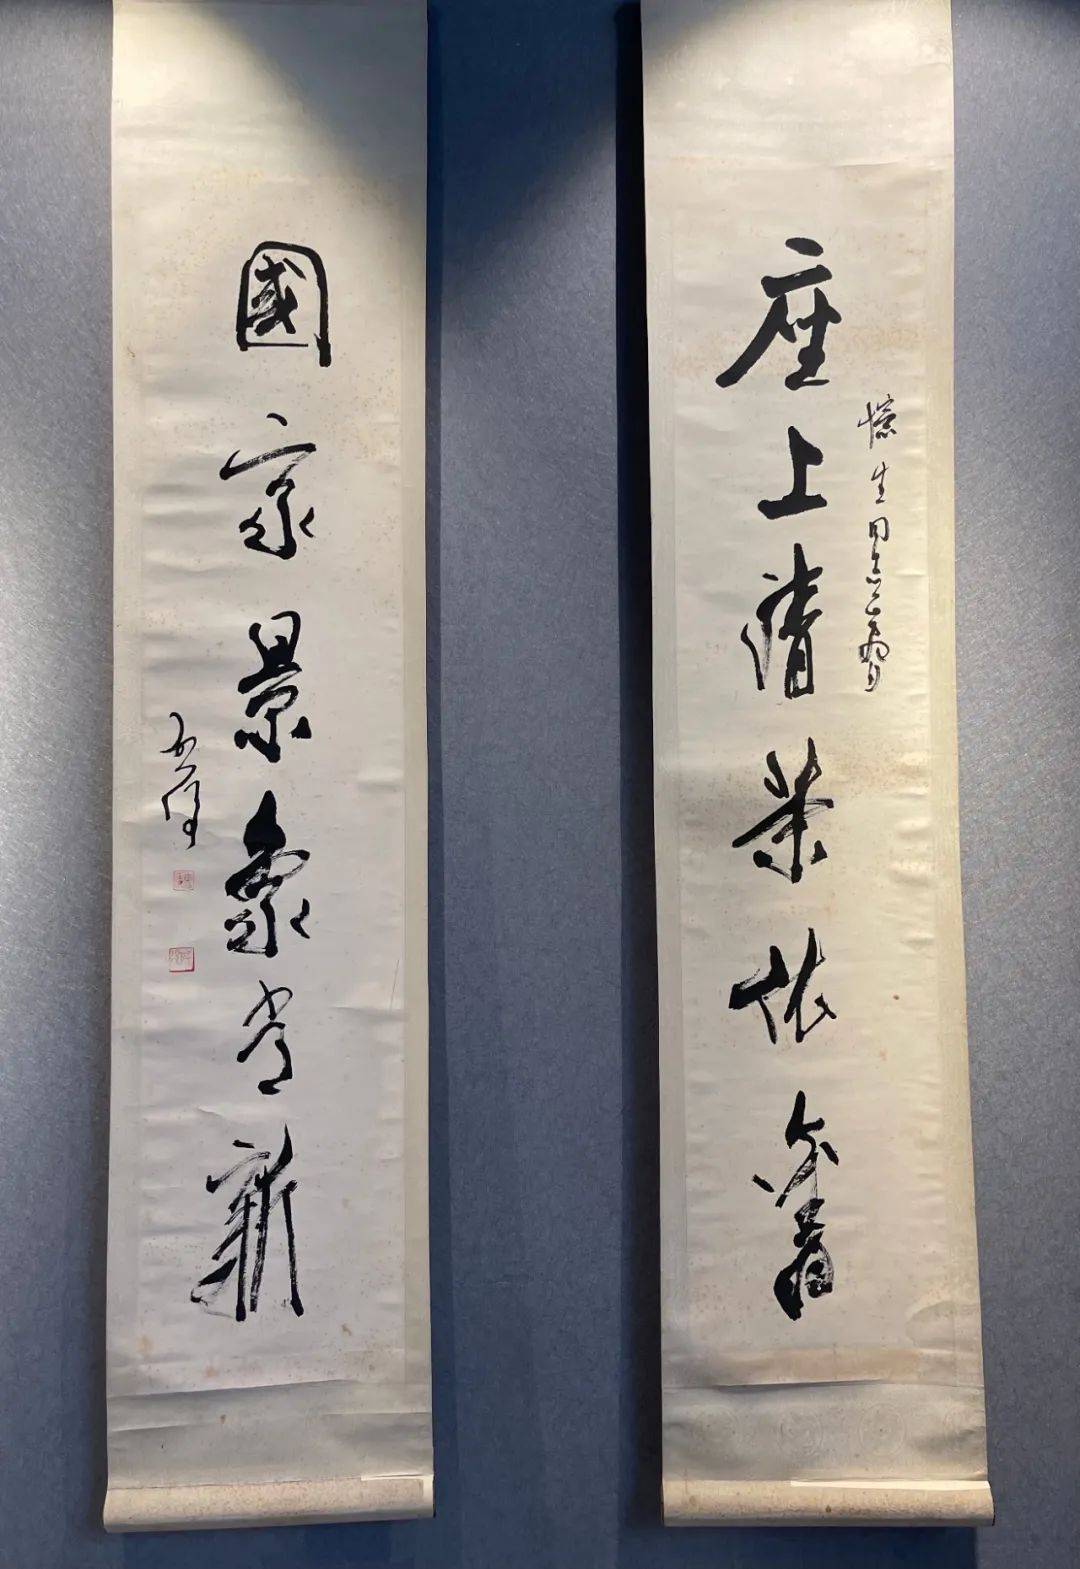 座上清茶依舊
生同志
國家景象常新